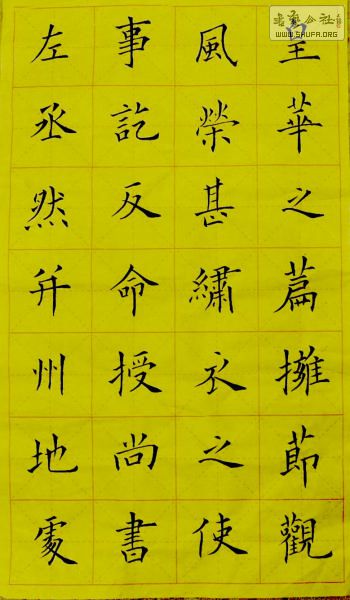 皇華之篇擁節觀
風榮甚繡衣之使
事訖反命授尚書
左丞然并州地處
公社
WWW.SHUFA.ORG